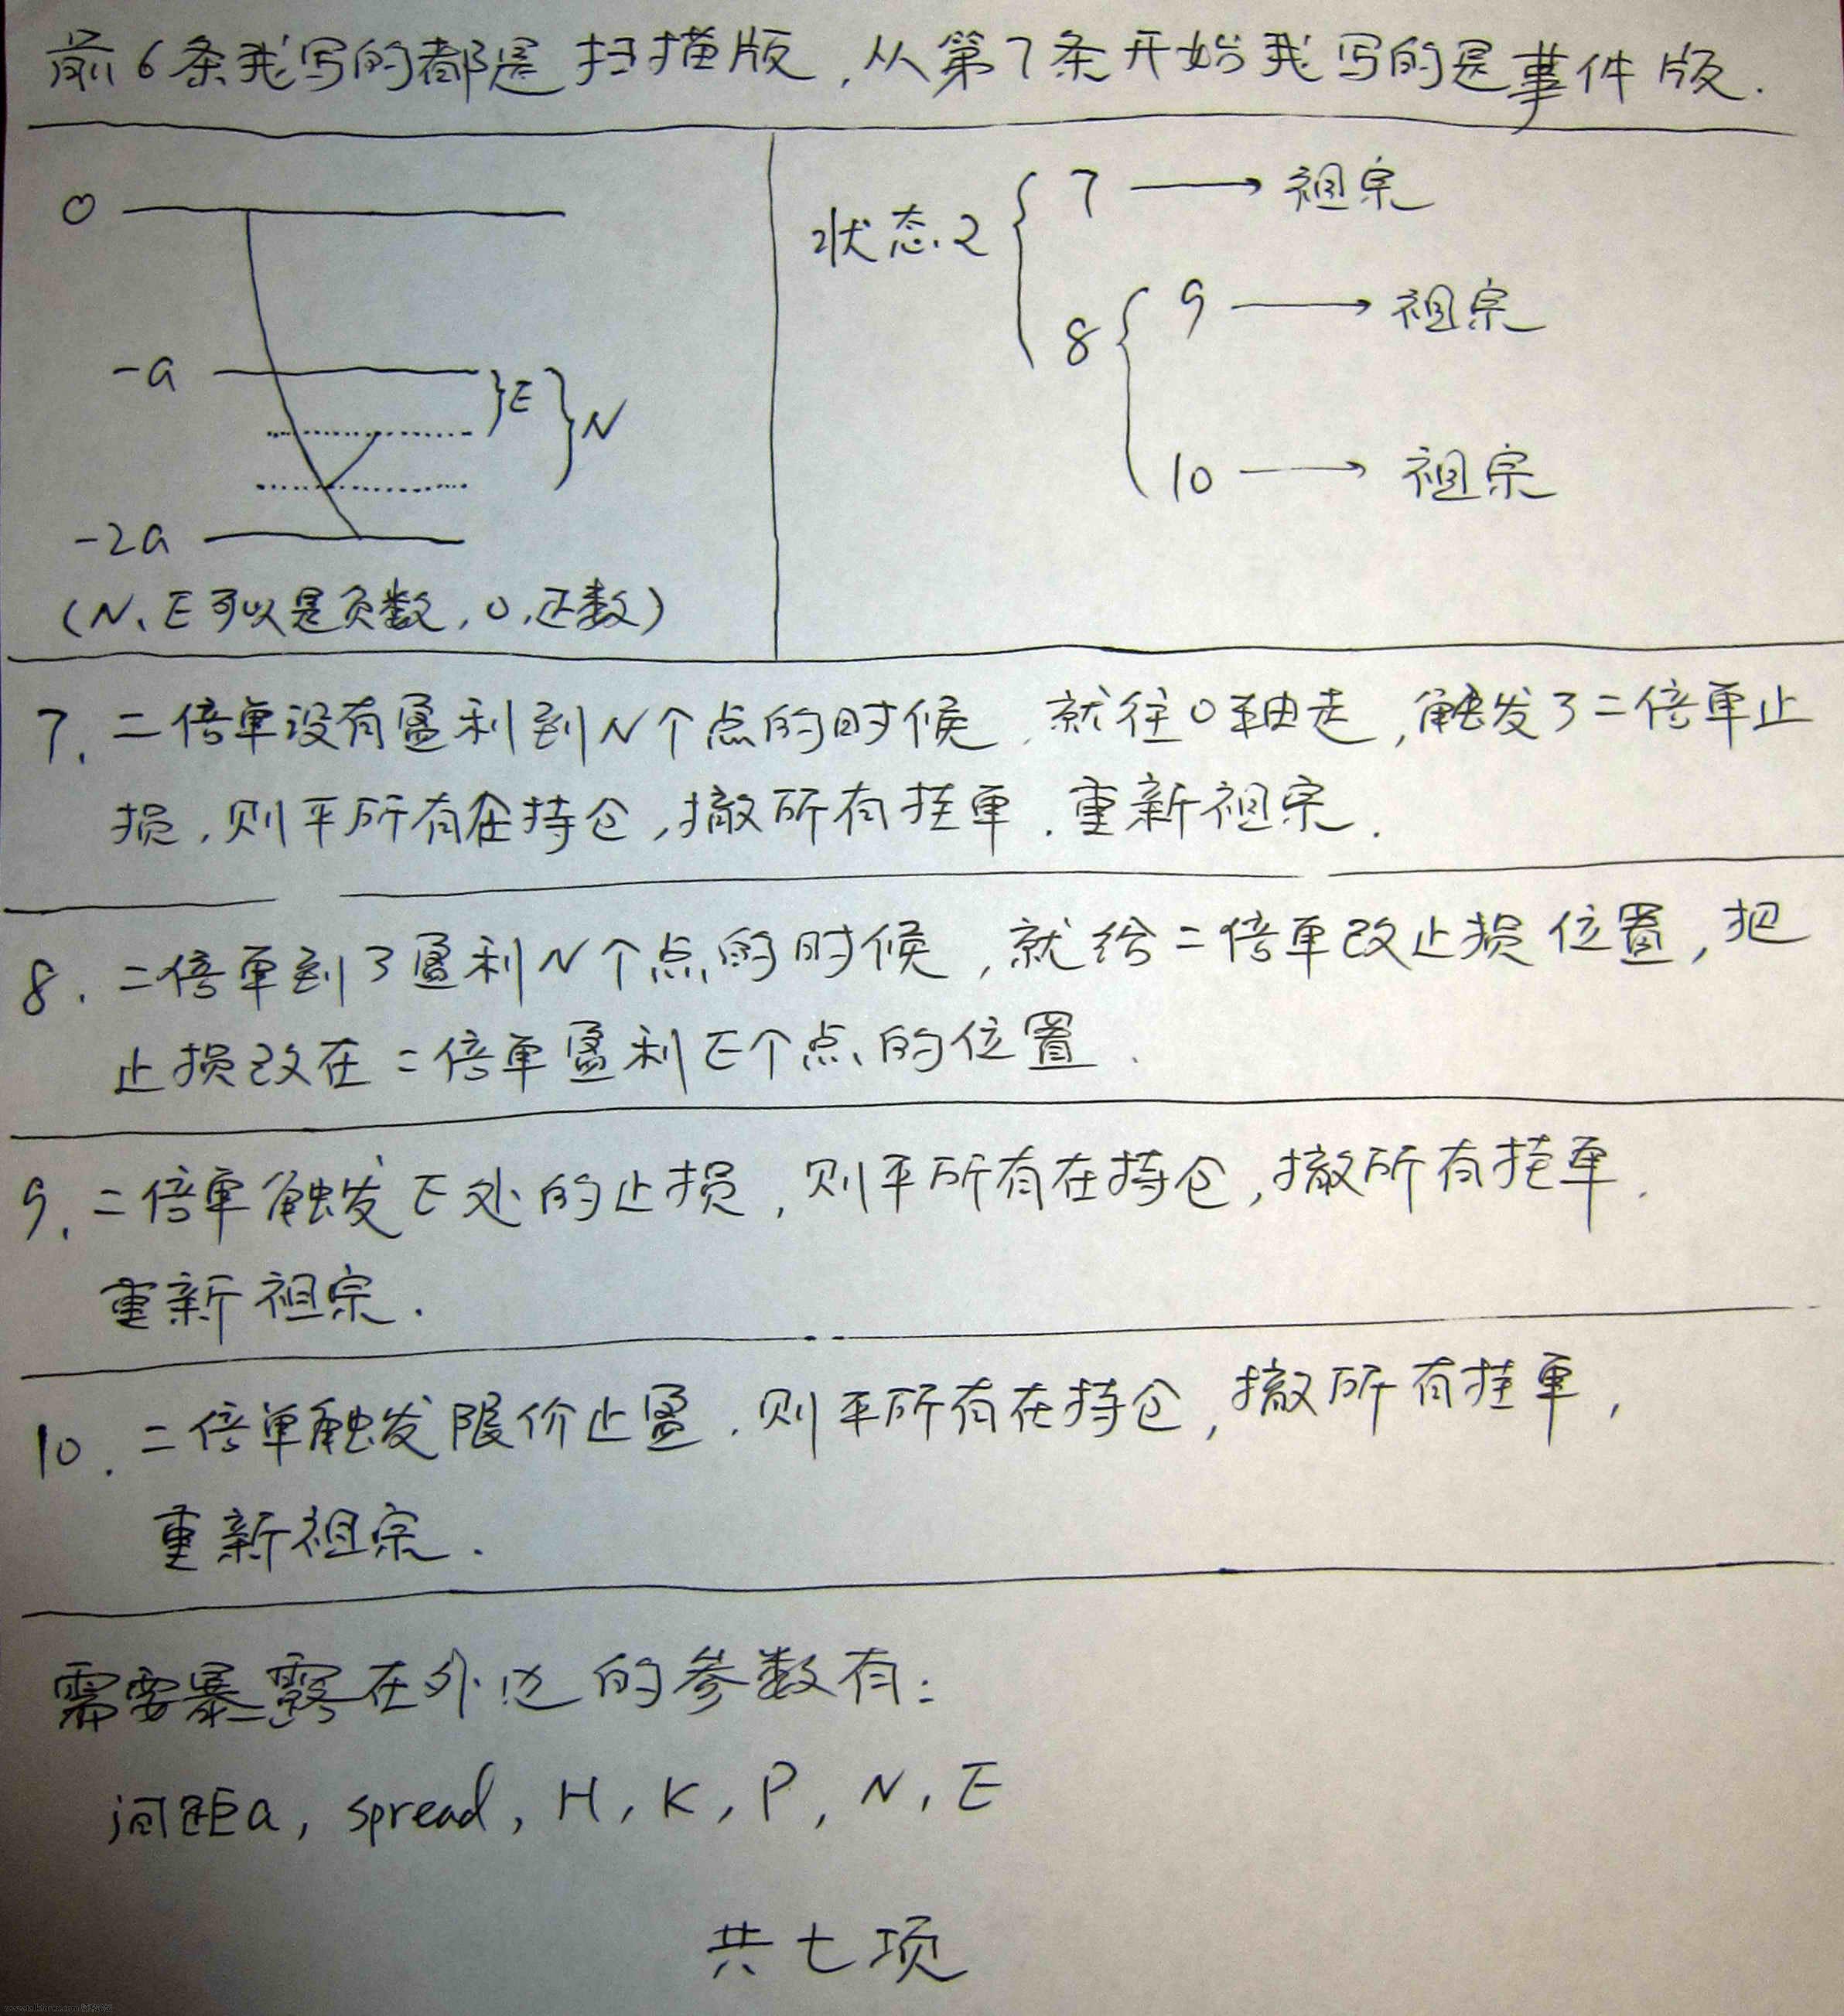 前6条我写的都是扫描版,从第7条开始我写的是事件版.
0
-a
E
N
-2a
(N、E可以是负数,0,正数)
状态2
7 → 祖宗
8
9 → 祖宗
10 → 祖宗
7. 二倍单没有盈利到N个点的时候,就往0轴走,触发了二倍单止
损,则平所有在持仓,撤所有挂单.重新祖宗.
8. 二倍单到了盈利N个点的时候,就给二倍单改止损位置,把
止损改在二倍单盈利E个点的位置.
9. 二倍单触发E处的止损,则平所有在持仓,撤所有挂单.
重新祖宗.
10. 二倍单触发限价止盈.则平所有在持仓,撤所有挂单,
重新祖宗.
需要暴露在外边的参数有:
间距a, spread, H, K, P, N, E
共七项